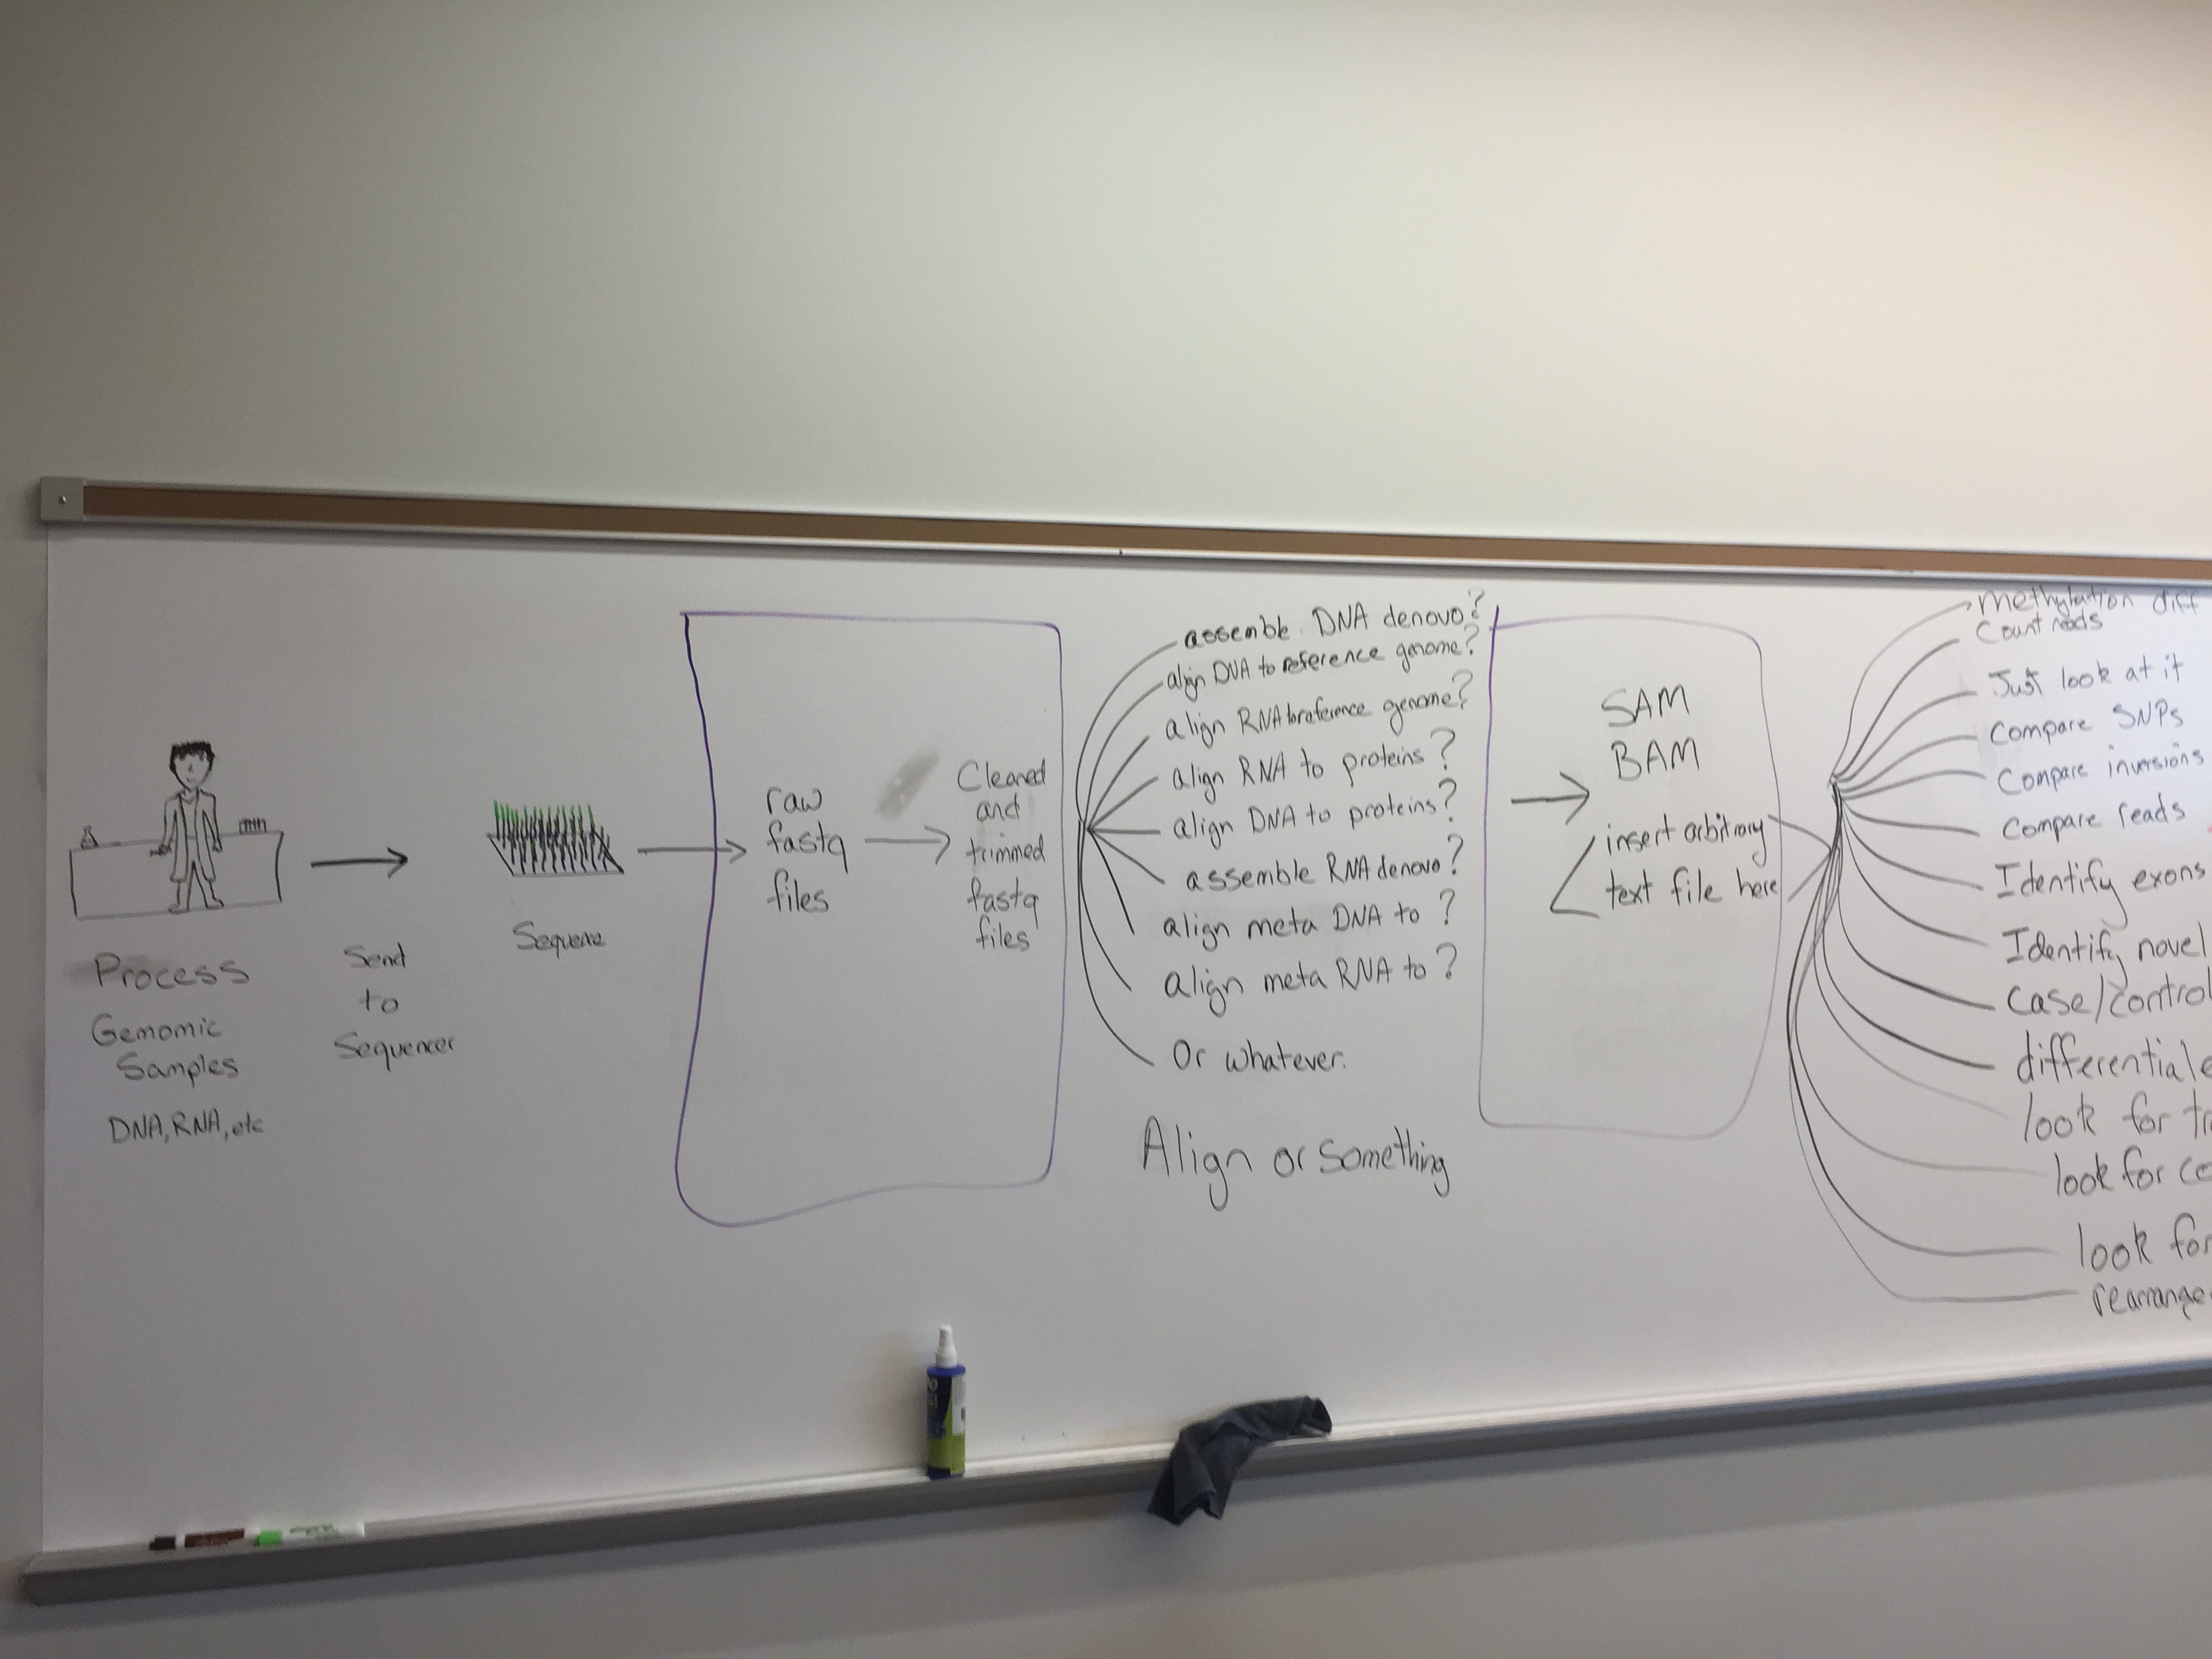 Process
Genomic
Samples
DNA, RNA, etc
Send
to
Sequencer
Sequence
raw
fastq
files
Cleaned
and
trimmed
fastq
files
assemble DNA denovo?
align DNA to reference genome?
align RNA to reference genome?
align RNA to proteins?
align DNA to proteins?
assemble RNA denovo?
align meta DNA to ?
align meta RNA to ?
Or whatever.
Align or something
SAM
BAM
insert arbitrary
text file here
Methylation diff
Count reads
Just look at it
Compare SNPs
Compare inversions
Compare reads
Identify exons
Identify novel
case/control
differential e
look for tr
look for co
look for
rearrange